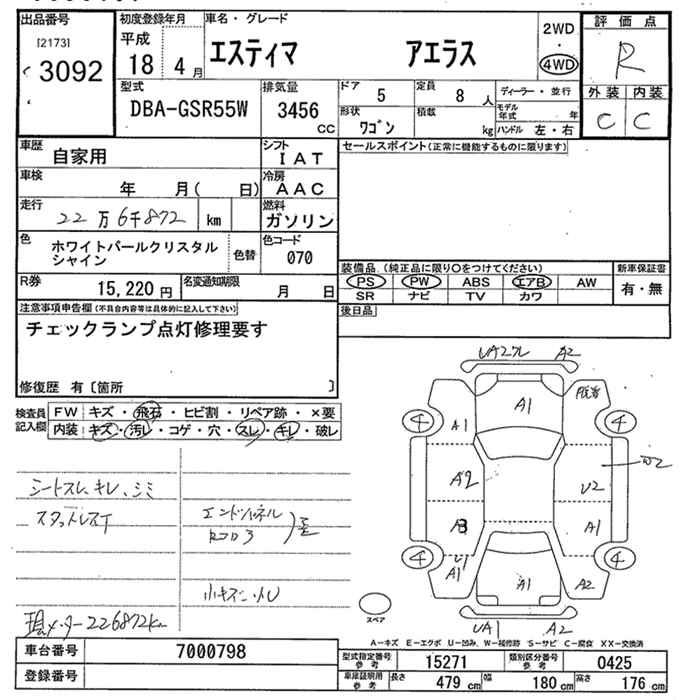 出品番号
[2173]
3092
初度登録年月
平成
18 4月
車名・グレード
エスティマ アエラス
2WD
・
4WD
評価点
R
外装 内装
C C
型式
DBA-GSR55W
排気量
3456 CC
ドア 5
定員 8人
形状 ワゴン
積載 kg
ディーラー・並行
モデル年式 年
ハンドル 左・右
車歴 自家用
シフト IAT
車検 年 月( 日)
冷房 AAC
走行 22万6千872 km
燃料 ガソリン
色 ホワイトパールクリスタル
シャイン
色替
色コード 070
R券 15,220円
名変通知期限 月 日
セールスポイント(正常に機能するものに限ります)
装備品(純正品に限り○をつけてください)
PS PW ABS エアB AW
SR ナビ TV カワ
新車保証書
有・無
後日品
注意事項申告欄(不具合内容等は具体的に記入して下さい)
チェックランプ点灯修理要す
修復歴 有〔箇所 〕
検査員
記入欄
FW キズ・飛石・ヒビ割・リペア跡・×要
内装 キズ・汚レ・コゲ・穴・スレ・キレ・破レ
シートスレ、キレ、シミ
小キズ
現メーター226872km
UA2 A2
A1
A1
4 4
A2
U2
W2
A1
U1
A1
4 4
A1
A2
UA1 A2
スペア
A-キズ E-エクボ U-凹み W-補修跡 S-サビ C-腐食 XX-交換済
車台番号 7000798
登録番号
型式指定番号
参考
15271
類別区分番号
参考
0425
車庫証明用
参考
長さ 479cm 幅 180cm 高さ 176cm